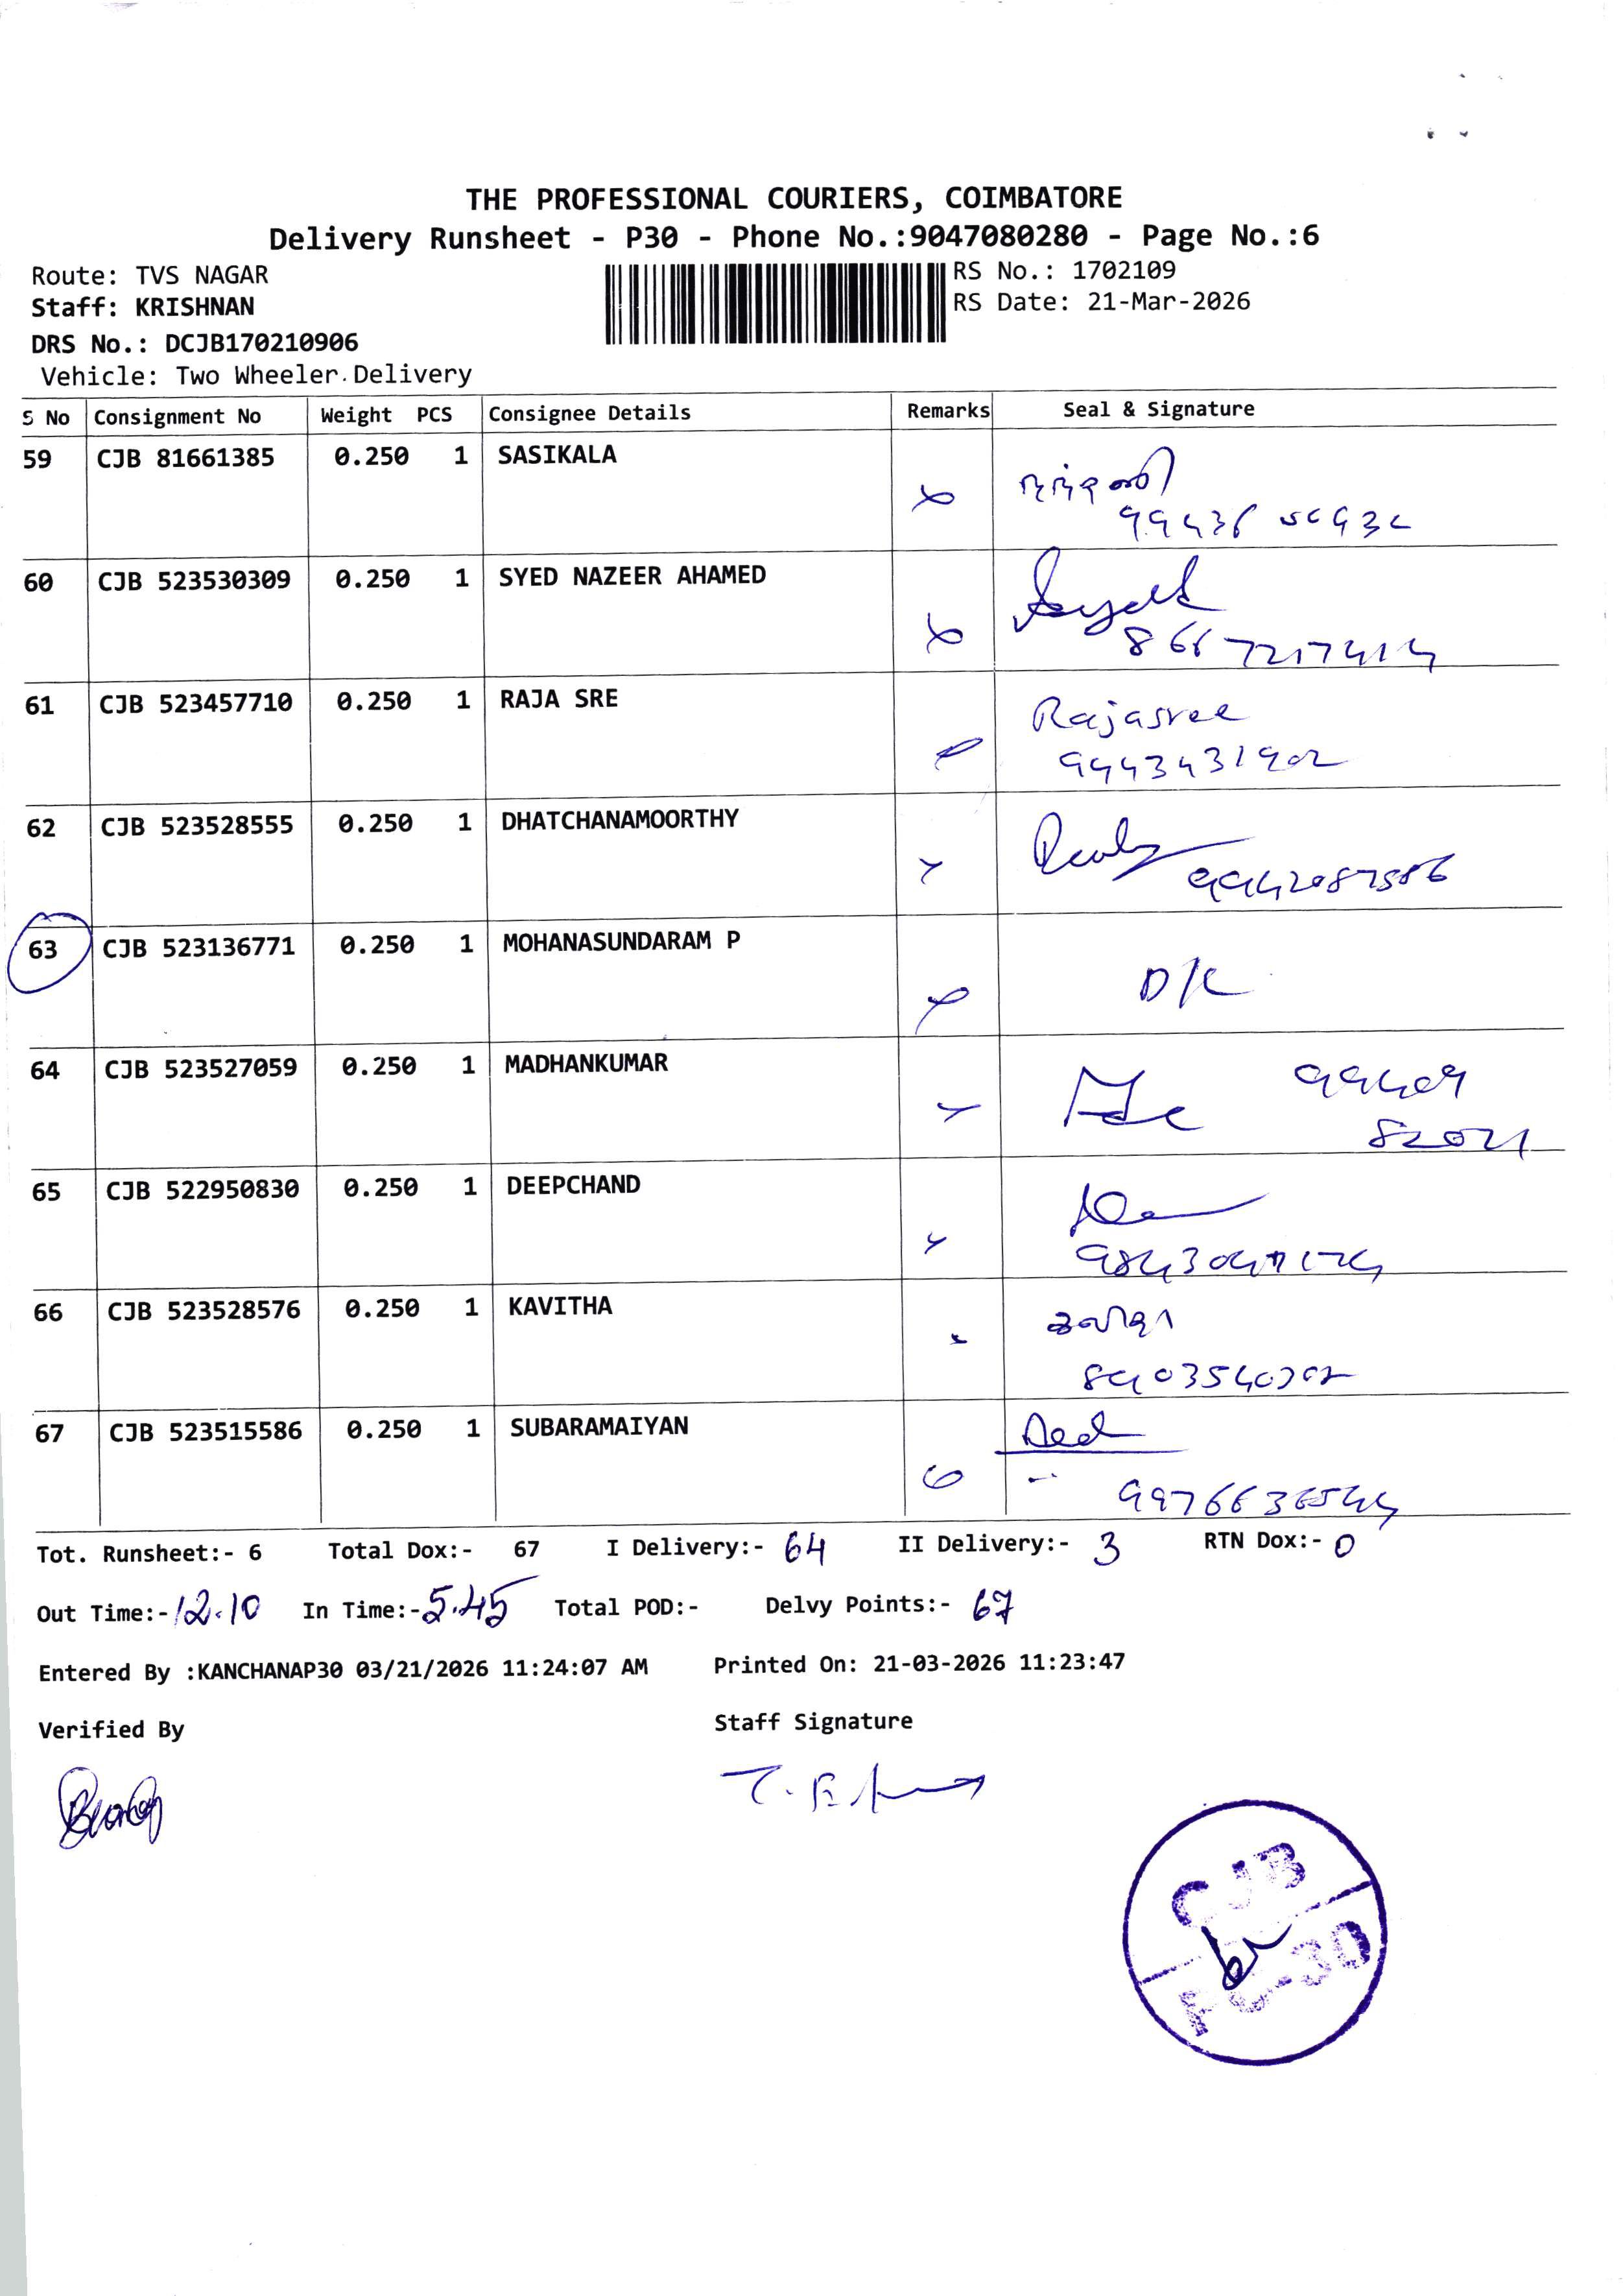 THE PROFESSIONAL COURIERS, COIMBATORE
Delivery Runsheet - P30 - Phone No.:9047080280 - Page No.:6
Route: TVS NAGAR
RS No.: 1702109
Staff: KRISHNAN
RS Date: 21-Mar-2026
DRS No.: DCJB170210906
Vehicle: Two Wheeler Delivery
S No Consignment No Weight PCS Consignee Details Remarks Seal & Signature
59 CJB 81661385 0.250 1 SASIKALA
60 CJB 523530309 0.250 1 SYED NAZEER AHAMED
8667217414
61 CJB 523457710 0.250 1 RAJA SRE
Rajasree
9443431902
62 CJB 523528555 0.250 1 DHATCHANAMOORTHY
63 CJB 523136771 0.250 1 MOHANASUNDARAM P
D/L
64 CJB 523527059 0.250 1 MADHANKUMAR
99409
82021
65 CJB 522950830 0.250 1 DEEPCHAND
66 CJB 523528576 0.250 1 KAVITHA
கவிதா
67 CJB 523515586 0.250 1 SUBARAMAIYAN
9976636544
Tot. Runsheet:- 6 Total Dox:- 67 I Delivery:- 64 II Delivery:- 3 RTN Dox:- 0
Out Time:- 12.10 In Time:- 5.45 Total POD:- Delvy Points:- 67
Entered By :KANCHANAP30 03/21/2026 11:24:07 AM Printed On: 21-03-2026 11:23:47
Verified By Staff Signature
CJB
PC-30